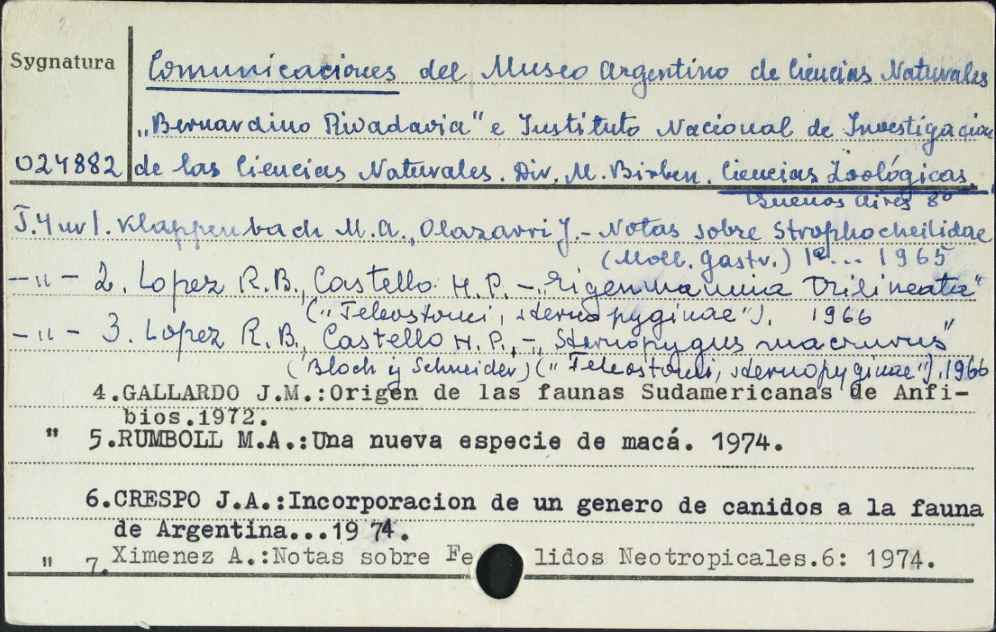 Sygnatura
Comunicaciones del Museo Argentino de Ciencias Naturales
"Bernardino Rivadavia" e Instituto Nacional de Investigacion
024882 de las Ciencias Naturales. Div. M. Birben. Ciencias Zoológicas.
Buenos Aires 8º
T.4 nr 1. Klappenbach M.A., Olazarri J. - Notas sobre Strophocheilidae
(Moll. Gastr.) ... 1965
-"- 2. Lopez R.B., Castello H.P. - "Eigenmannia Trilineata"
("Teleostomi, sternopyginae"). 1966
-"- 3. Lopez R.B., Castello H.P. - "Sternopygus macrurus"
(Bloch y Schneider) ("Teleostomi, sternopyginae"). 1966
4.GALLARDO J.M.:Origen de las faunas Sudamericanas de Anfi-
bios.1972.
" 5.RUMBOLL M.A.:Una nueva especie de macá. 1974.
6.CRESPO J.A.:Incorporacion de un genero de canidos a la fauna
de Argentina...19 74.
" 7.Ximenez A.:Notas sobre Fe lidos Neotropicales.6: 1974.